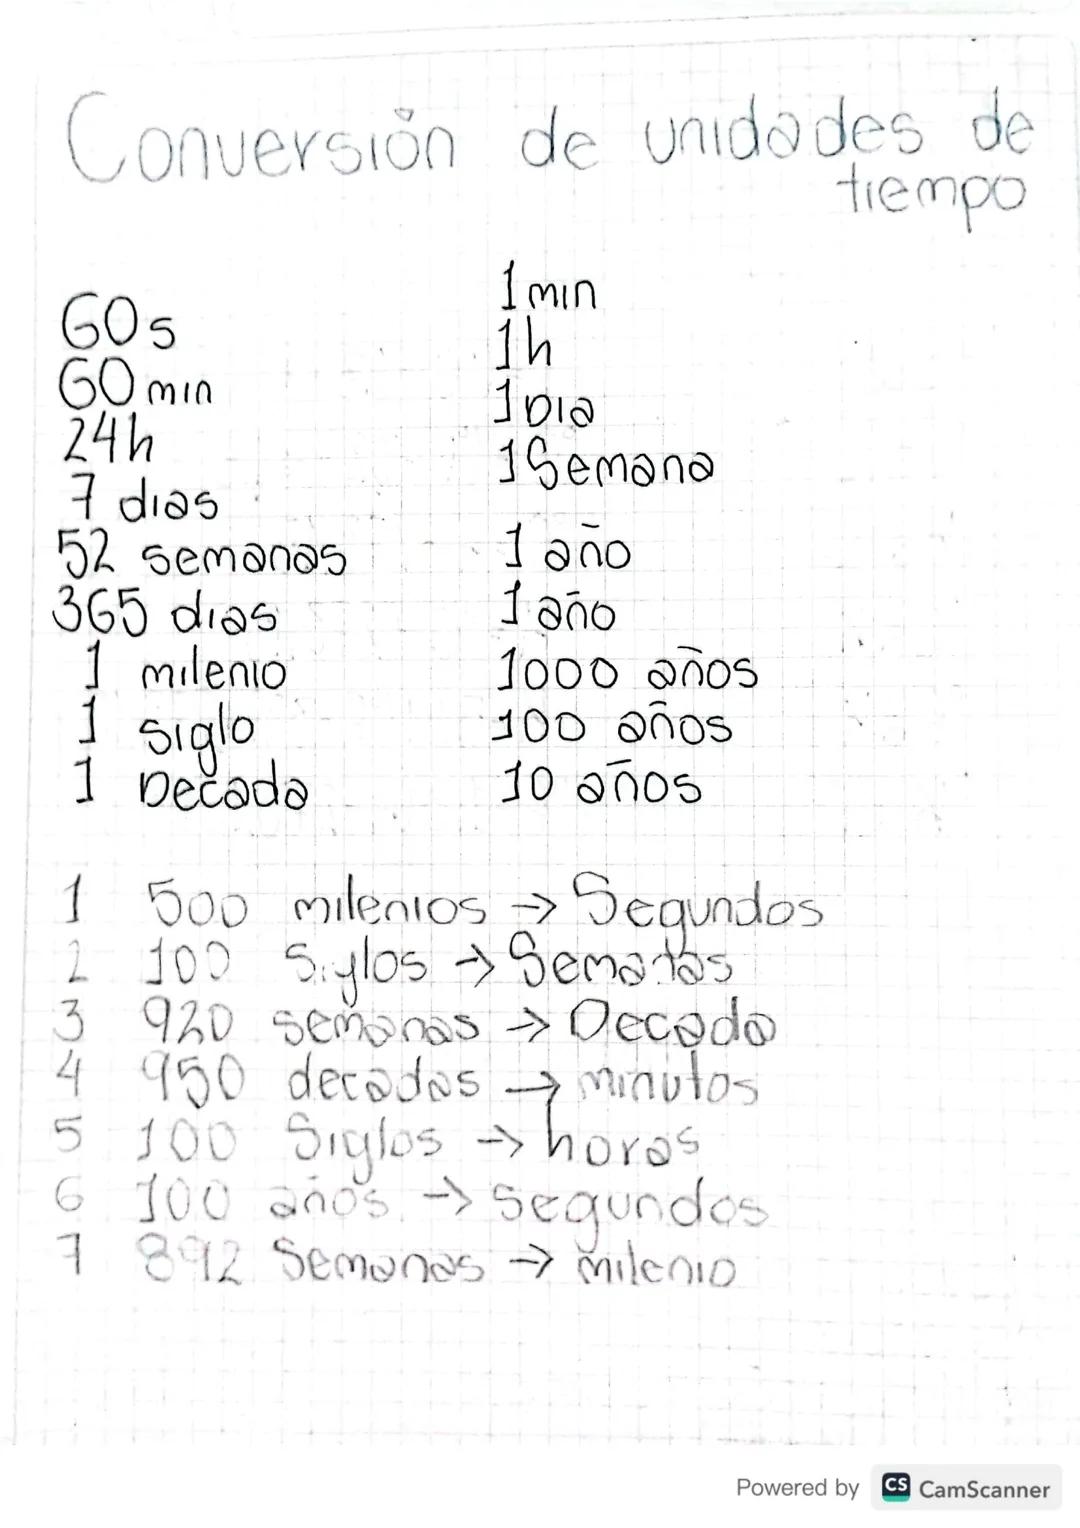 Conversión de unidades de
tiempo
60s 1 min
60 min 1h
24h 1 Dia
7 dias 1 Semana
52 semanas 1 año
365 dias 1 año
1 milenio 1000 años
1 siglo 100 años
1 Decada 10 años
1 500 milenios → Segundos
2 100 Siglos → Semanas
3 920 semanas → Decada
4 950 decadas → minutos
5 100 Siglos → horas
6 100 años → segundos
7 892 Semanas → milenio
Powered by CS CamScanner